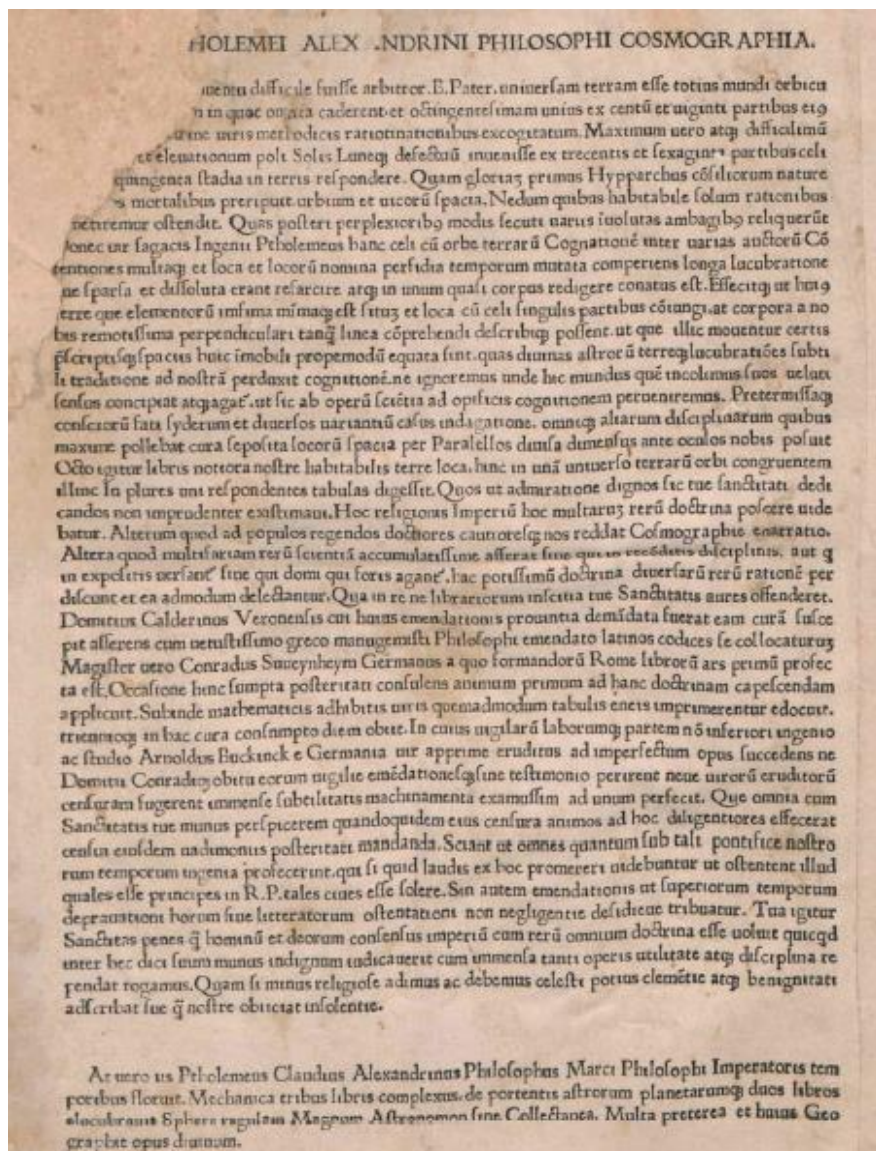 HOLEMEI ALEX NDRINI PHILOSOPHI COSMOGRAPHIA.
difficile fuisse arbitror. B. Pater. universam terram esse totius mundi orbicu
in quae caderent et octingentesimam unius ex centũ et uiginti partibus eiꝯ
uiris methodicis ratiotinationibus excogitatum. Maximum uero atqꝫ difficilimũ
eleuationum poli Solis Luneqꝫ defectuũ inuenisse ex trecentis et sexaginta partibus celi
quingenta stadia in terris respondere. Quam gloriaꝫ primus Hypparchus cõsiliorum nature
s mortalibus preripuit urbium et uicorũ spacia. Nedum quibus habitabile solum rationibus
metiremur ostendit. Quas posteri perplexioribꝯ modis secuti uariis iuolutas ambagibꝯ reliquerũt
donec uir sagacis Ingenii Ptholemeus hanc celi cũ orbe terrarũ Cognationẽ inter uarias auctorũ Cõ
tentiones multaqꝫ et loca et locorũ nomina perfidia temporum mutata comperiens longa lucubratione
ne sparsa et dissoluta erant resarcire atqꝫ in unum quasi corpus redigere conatus est. Effecitqꝫ ut huiꝯ
terre que elementorũ infima mĩmaqꝫ est situꝫ et loca cũ celi singulis partibus cõiungi. at corpora a no
bis remotissima perpendiculari tanqꝫ linea cõprehendi describiqꝫ possent. ut que illic mouentur certis
p̃scriptisqꝫ spaciis huic ĩmobili propemodũ equata sint. quas diuinas astrorũ terreqꝫ lucubratiões subti
li traditione ad nostrã perduxit cognitionẽ. ne ignoremus unde hic mundus quẽ incolimus suos ueluti
sensus concipiat atqꝫ agat̃. ut sic ab operũ sciẽtia ad opificis cognitionem perueniremus. Pretermissaqꝫ
consciorũ fati syderum et diuersos uariantiũ casus indagatione. omniqꝫ aliarum disciplinarum quibus
maxime pollebat cura seposita locorũ spacia per Paralellos diuisa dimensus ante oculos nobis posuit
Octo igitur libris notiora nostre habitabilis terre loca. hinc in unã uniuerso terrarũ orbi congruentem
illinc In plures uni respondentes tabulas digessit. Quos ut admiratione dignos sic tue sanctitati dedi
candos non imprudenter existimaui. Hoc religionis Imperiũ hoc multaruꝫ rerũ doctrina poscere uide
batur. Alterum quod ad populos regendos doctiores cautioresqꝫ nos reddat Cosmographie enarratio.
Altera quod multifariam rerũ scientiã accumulatissime afferat siue qui in recõditis disciplinis. aut q̃
in expositis uersant̃ siue qui domi qui foris agant̃. hac potissimũ doctrina diuersarũ rerũ rationẽ per
discunt et ea admodum delectantur. Qua in re ne librariorum inscitia tue Sanctitatis aures offenderet.
Domitius Calderinus Veronensis cui huius emendationis prouintia demãdata fuerat eam curã susce
pit asserens cum uetustissimo greco manu Philosophi emendato latinos codices se collocaturuꝫ
Magister uero Conradus Suueynheym Germanus a quo formandorũ Rome librorũ ars primũ profec
ta est. Occasione hinc sumpta posteritati consulens animum primum ad hanc doctrinam capescendam
applicuit. Subinde mathematicis adhibitis uiris quemadmodum tabulis eneis imprimerentur edocuit.
triennioqꝫ in hac cura consumpto diem obiit. In cuius uigilarũ laborumqꝫ partem nõ inferiori ingenio
ac studio Arnoldus Buckinck e Germania uir apprime eruditus ad imperfectum opus succedens ne
Domitii Conradiqꝫ obitu eorum uigilie emẽdationesqꝫ sine testimonio perirent neue uirorũ eruditorũ
censuram fugerent immense subtilitatis machinamenta examussim ad unum perfecit. Que omnia cum
Sanctitatis tue munus perspicerem quandoquidem eius censura animos ad hoc diligentiores effecerat
censui eiusdem uadimoniis posteritati mandanda. Sciant ut omnes quantum sub tali pontifice nostro
rum temporum ingenia profecerint. qui si quid laudis ex hoc promereri uidebuntur ut ostentent illud
quales esse principes in R.P. tales ciues esse solere. Sin autem emendationis ut superiorum temporum
deprauationi horum siue litteratorum ostentationi non negligentie desidieue tribuatur. Tua igitur
Sanctitas penes q̃ hominũ et deorum consensus imperiũ cum rerũ omnium doctrina esse uoluit quicq̃d
inter hec dici suum munus indignum iudicauerit cum immensa tanti operis utilitate atqꝫ disciplina re
pendat rogamus. Quam si minus religiose adimus ac debemus celesti potius clemẽtie atqꝫ benignitati
adscribat sue q̃ nostre obiiciat insolentie.
At uero is Ptholemeus Claudius Alexandrinus Philosophus Marci Philosophi Imperatoris tem
poribus floruit. Mechanica tribus libris complexus. de portentis astrorum planetarumqꝫ duos libros
elucubrauit Sphere regulam Magnum Astronomon siue Collectanea. Multa preterea et huius Geo
graphie opus diuinum.